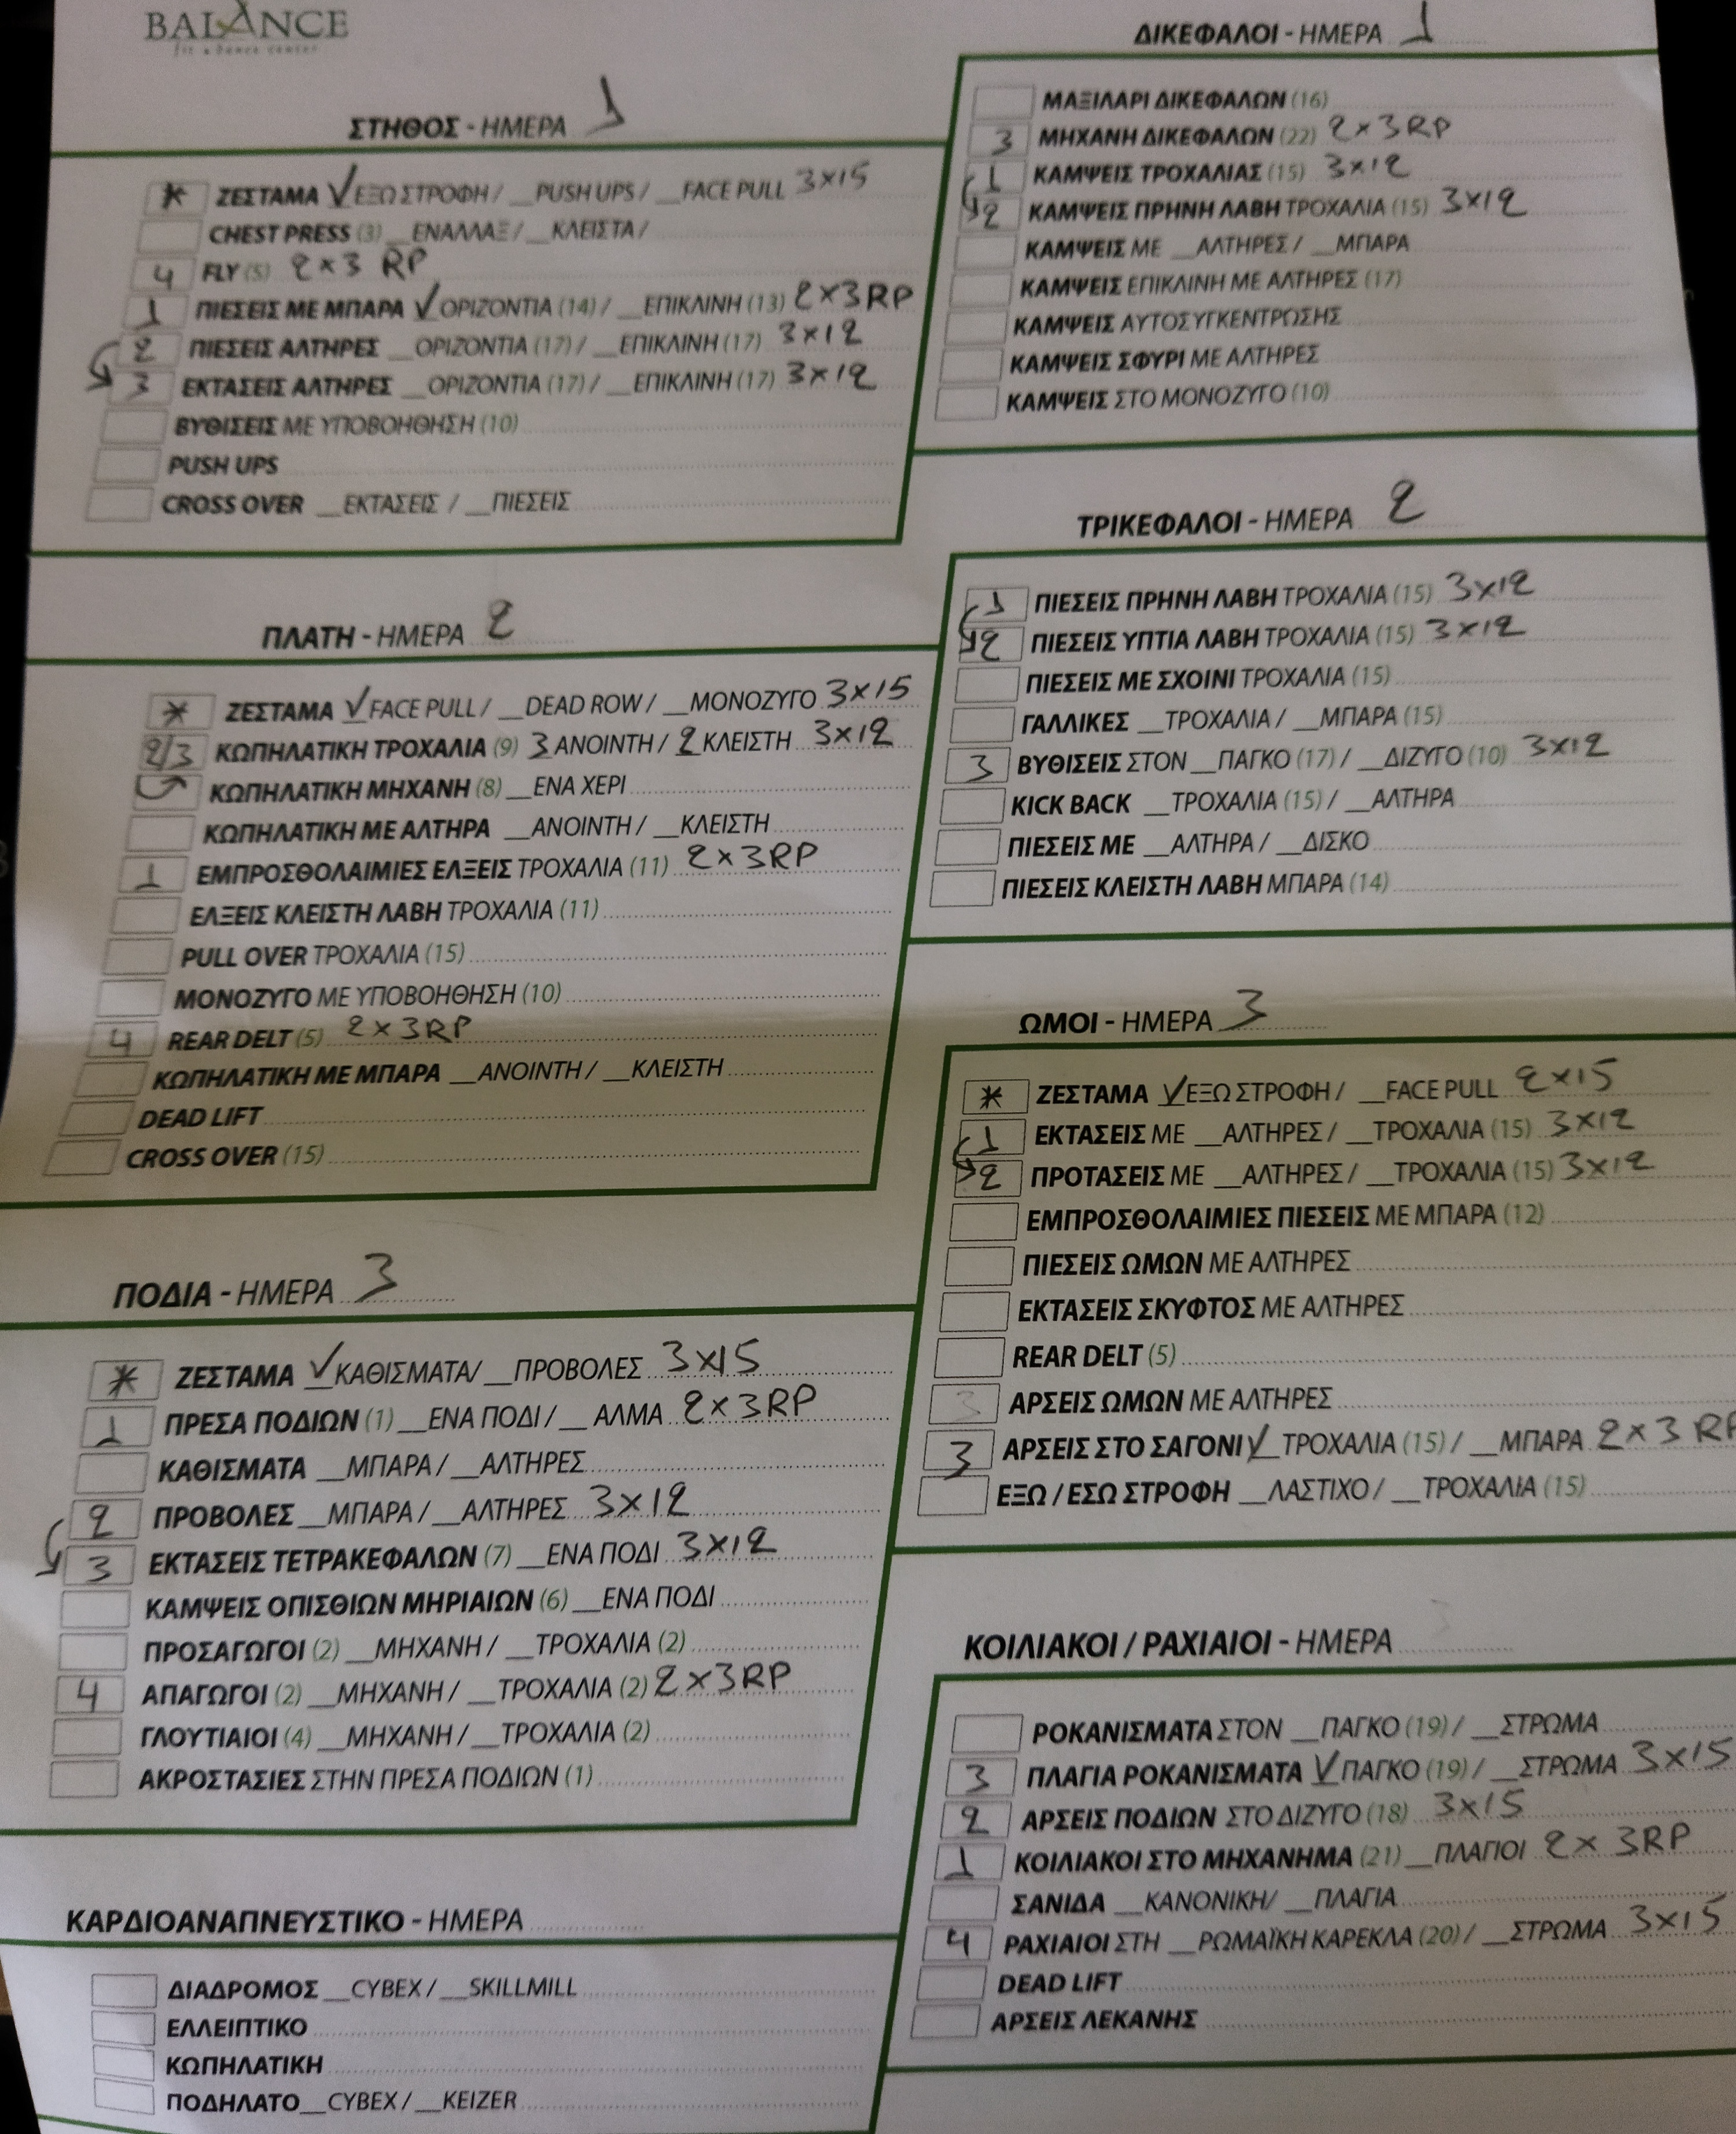 BALANCE
fit & dance center
ΣΤΗΘΟΣ - ΗΜΕΡΑ 1
* ΖΕΣΤΑΜΑ ✓ΕΞΩ ΣΤΡΟΦΗ / __PUSH UPS / __FACE PULL 3×15
CHEST PRESS (3) __ΕΝΑΛΛΑΞ / __ΚΛΕΙΣΤΑ /
4 FLY (5) 2×3 RP
1 ΠΙΕΣΕΙΣ ΜΕ ΜΠΑΡΑ ✓ΟΡΙΖΟΝΤΙΑ (14) / __ΕΠΙΚΛΙΝΗ (13) 2×3RP
2 ΠΙΕΣΕΙΣ ΑΛΤΗΡΕΣ __ΟΡΙΖΟΝΤΙΑ (17) / __ΕΠΙΚΛΙΝΗ (17) 3×12
3 ΕΚΤΑΣΕΙΣ ΑΛΤΗΡΕΣ __ΟΡΙΖΟΝΤΙΑ (17) / __ΕΠΙΚΛΙΝΗ (17) 3×12
ΒΥΘΙΣΕΙΣ ΜΕ ΥΠΟΒΟΗΘΗΣΗ (10)
PUSH UPS
CROSS OVER __ΕΚΤΑΣΕΙΣ / __ΠΙΕΣΕΙΣ
ΠΛΑΤΗ - ΗΜΕΡΑ 2
* ΖΕΣΤΑΜΑ ✓FACE PULL / __DEAD ROW / __ΜΟΝΟΖΥΓΟ 3×15
2/3 ΚΩΠΗΛΑΤΙΚΗ ΤΡΟΧΑΛΙΑ (9) 3 ΑΝΟΙΝΤΗ / 2 ΚΛΕΙΣΤΗ 3×12
ΚΩΠΗΛΑΤΙΚΗ ΜΗΧΑΝΗ (8) __ΕΝΑ ΧΕΡΙ
ΚΩΠΗΛΑΤΙΚΗ ΜΕ ΑΛΤΗΡΑ __ΑΝΟΙΝΤΗ / __ΚΛΕΙΣΤΗ
1 ΕΜΠΡΟΣΘΟΛΑΙΜΙΕΣ ΕΛΞΕΙΣ ΤΡΟΧΑΛΙΑ (11) 2×3RP
ΕΛΞΕΙΣ ΚΛΕΙΣΤΗ ΛΑΒΗ ΤΡΟΧΑΛΙΑ (11)
PULL OVER ΤΡΟΧΑΛΙΑ (15)
ΜΟΝΟΖΥΓΟ ΜΕ ΥΠΟΒΟΗΘΗΣΗ (10)
4 REAR DELT (5) 2×3RP
ΚΩΠΗΛΑΤΙΚΗ ΜΕ ΜΠΑΡΑ __ΑΝΟΙΝΤΗ / __ΚΛΕΙΣΤΗ
DEAD LIFT
CROSS OVER (15)
ΠΟΔΙΑ - ΗΜΕΡΑ 3
* ΖΕΣΤΑΜΑ ✓ΚΑΘΙΣΜΑΤΑ/ __ΠΡΟΒΟΛΕΣ 3×15
1 ΠΡΕΣΑ ΠΟΔΙΩΝ (1) __ΕΝΑ ΠΟΔΙ / __ ΑΛΜΑ 2×3RP
ΚΑΘΙΣΜΑΤΑ __ΜΠΑΡΑ / __ΑΛΤΗΡΕΣ
2 ΠΡΟΒΟΛΕΣ __ΜΠΑΡΑ / __ΑΛΤΗΡΕΣ 3×12
3 ΕΚΤΑΣΕΙΣ ΤΕΤΡΑΚΕΦΑΛΩΝ (7) __ΕΝΑ ΠΟΔΙ 3×12
ΚΑΜΨΕΙΣ ΟΠΙΣΘΙΩΝ ΜΗΡΙΑΙΩΝ (6) __ΕΝΑ ΠΟΔΙ
ΠΡΟΣΑΓΩΓΟΙ (2) __ΜΗΧΑΝΗ / __ΤΡΟΧΑΛΙΑ (2)
4 ΑΠΑΓΩΓΟΙ (2) __ΜΗΧΑΝΗ / __ΤΡΟΧΑΛΙΑ (2) 2×3RP
ΓΛΟΥΤΙΑΙΟΙ (4) __ΜΗΧΑΝΗ / __ΤΡΟΧΑΛΙΑ (2)
ΑΚΡΟΣΤΑΣΙΕΣ ΣΤΗΝ ΠΡΕΣΑ ΠΟΔΙΩΝ (1)
ΚΑΡΔΙΟΑΝΑΠΝΕΥΣΤΙΚΟ - ΗΜΕΡΑ
ΔΙΑΔΡΟΜΟΣ __CYBEX / __SKILLMILL
ΕΛΛΕΙΠΤΙΚΟ
ΚΩΠΗΛΑΤΙΚΗ
ΠΟΔΗΛΑΤΟ __CYBEX / __KEIZER
ΔΙΚΕΦΑΛΟΙ - ΗΜΕΡΑ 1
ΜΑΞΙΛΑΡΙ ΔΙΚΕΦΑΛΩΝ (16)
3 ΜΗΧΑΝΗ ΔΙΚΕΦΑΛΩΝ (22) 2×3RP
1 ΚΑΜΨΕΙΣ ΤΡΟΧΑΛΙΑΣ (15) 3×12
2 ΚΑΜΨΕΙΣ ΠΡΗΝΗ ΛΑΒΗ ΤΡΟΧΑΛΙΑ (15) 3×12
ΚΑΜΨΕΙΣ ΜΕ __ΑΛΤΗΡΕΣ / __ΜΠΑΡΑ
ΚΑΜΨΕΙΣ ΕΠΙΚΛΙΝΗ ΜΕ ΑΛΤΗΡΕΣ (17)
ΚΑΜΨΕΙΣ ΑΥΤΟΣΥΓΚΕΝΤΡΩΣΗΣ
ΚΑΜΨΕΙΣ ΣΦΥΡΙ ΜΕ ΑΛΤΗΡΕΣ
ΚΑΜΨΕΙΣ ΣΤΟ ΜΟΝΟΖΥΓΟ (10)
ΤΡΙΚΕΦΑΛΟΙ - ΗΜΕΡΑ 2
1 ΠΙΕΣΕΙΣ ΠΡΗΝΗ ΛΑΒΗ ΤΡΟΧΑΛΙΑ (15) 3×12
2 ΠΙΕΣΕΙΣ ΥΠΤΙΑ ΛΑΒΗ ΤΡΟΧΑΛΙΑ (15) 3×12
ΠΙΕΣΕΙΣ ΜΕ ΣΧΟΙΝΙ ΤΡΟΧΑΛΙΑ (15)
ΓΑΛΛΙΚΕΣ __ΤΡΟΧΑΛΙΑ / __ΜΠΑΡΑ (15)
3 ΒΥΘΙΣΕΙΣ ΣΤΟΝ __ΠΑΓΚΟ (17) / __ΔΙΖΥΓΟ (10) 3×12
KICK BACK __ΤΡΟΧΑΛΙΑ (15) / __ΑΛΤΗΡΑ
ΠΙΕΣΕΙΣ ΜΕ __ΑΛΤΗΡΑ / __ΔΙΣΚΟ
ΠΙΕΣΕΙΣ ΚΛΕΙΣΤΗ ΛΑΒΗ ΜΠΑΡΑ (14)
ΩΜΟΙ - ΗΜΕΡΑ 3
* ΖΕΣΤΑΜΑ ✓ΕΞΩ ΣΤΡΟΦΗ / __FACE PULL 2×15
1 ΕΚΤΑΣΕΙΣ ΜΕ __ΑΛΤΗΡΕΣ / __ΤΡΟΧΑΛΙΑ (15) 3×12
2 ΠΡΟΤΑΣΕΙΣ ΜΕ __ΑΛΤΗΡΕΣ / __ΤΡΟΧΑΛΙΑ (15) 3×12
ΕΜΠΡΟΣΘΟΛΑΙΜΙΕΣ ΠΙΕΣΕΙΣ ΜΕ ΜΠΑΡΑ (12)
ΠΙΕΣΕΙΣ ΩΜΩΝ ΜΕ ΑΛΤΗΡΕΣ
ΕΚΤΑΣΕΙΣ ΣΚΥΦΤΟΣ ΜΕ ΑΛΤΗΡΕΣ
REAR DELT (5)
3 ΑΡΣΕΙΣ ΩΜΩΝ ΜΕ ΑΛΤΗΡΕΣ
3 ΑΡΣΕΙΣ ΣΤΟ ΣΑΓΟΝΙ ✓ΤΡΟΧΑΛΙΑ (15) / __ΜΠΑΡΑ 2×3 RP
ΕΞΩ / ΕΣΩ ΣΤΡΟΦΗ __ΛΑΣΤΙΧΟ / __ΤΡΟΧΑΛΙΑ (15)
ΚΟΙΛΙΑΚΟΙ / ΡΑΧΙΑΙΟΙ - ΗΜΕΡΑ 3
ΡΟΚΑΝΙΣΜΑΤΑ ΣΤΟΝ __ΠΑΓΚΟ (19) / __ΣΤΡΩΜΑ
3 ΠΛΑΓΙΑ ΡΟΚΑΝΙΣΜΑΤΑ ✓ΠΑΓΚΟ (19) / __ΣΤΡΩΜΑ 3×15
2 ΑΡΣΕΙΣ ΠΟΔΙΩΝ ΣΤΟ ΔΙΖΥΓΟ (18) 3×15
1 ΚΟΙΛΙΑΚΟΙ ΣΤΟ ΜΗΧΑΝΗΜΑ (21) __ΠΛΑΓΙΟΙ 2× 3RP
ΣΑΝΙΔΑ __ΚΑΝΟΝΙΚΗ/ __ΠΛΑΓΙΑ
4 ΡΑΧΙΑΙΟΙ ΣΤΗ __ΡΩΜΑΪΚΗ ΚΑΡΕΚΛΑ (20) / __ΣΤΡΩΜΑ 3×15
DEAD LIFT
ΑΡΣΕΙΣ ΛΕΚΑΝΗΣ